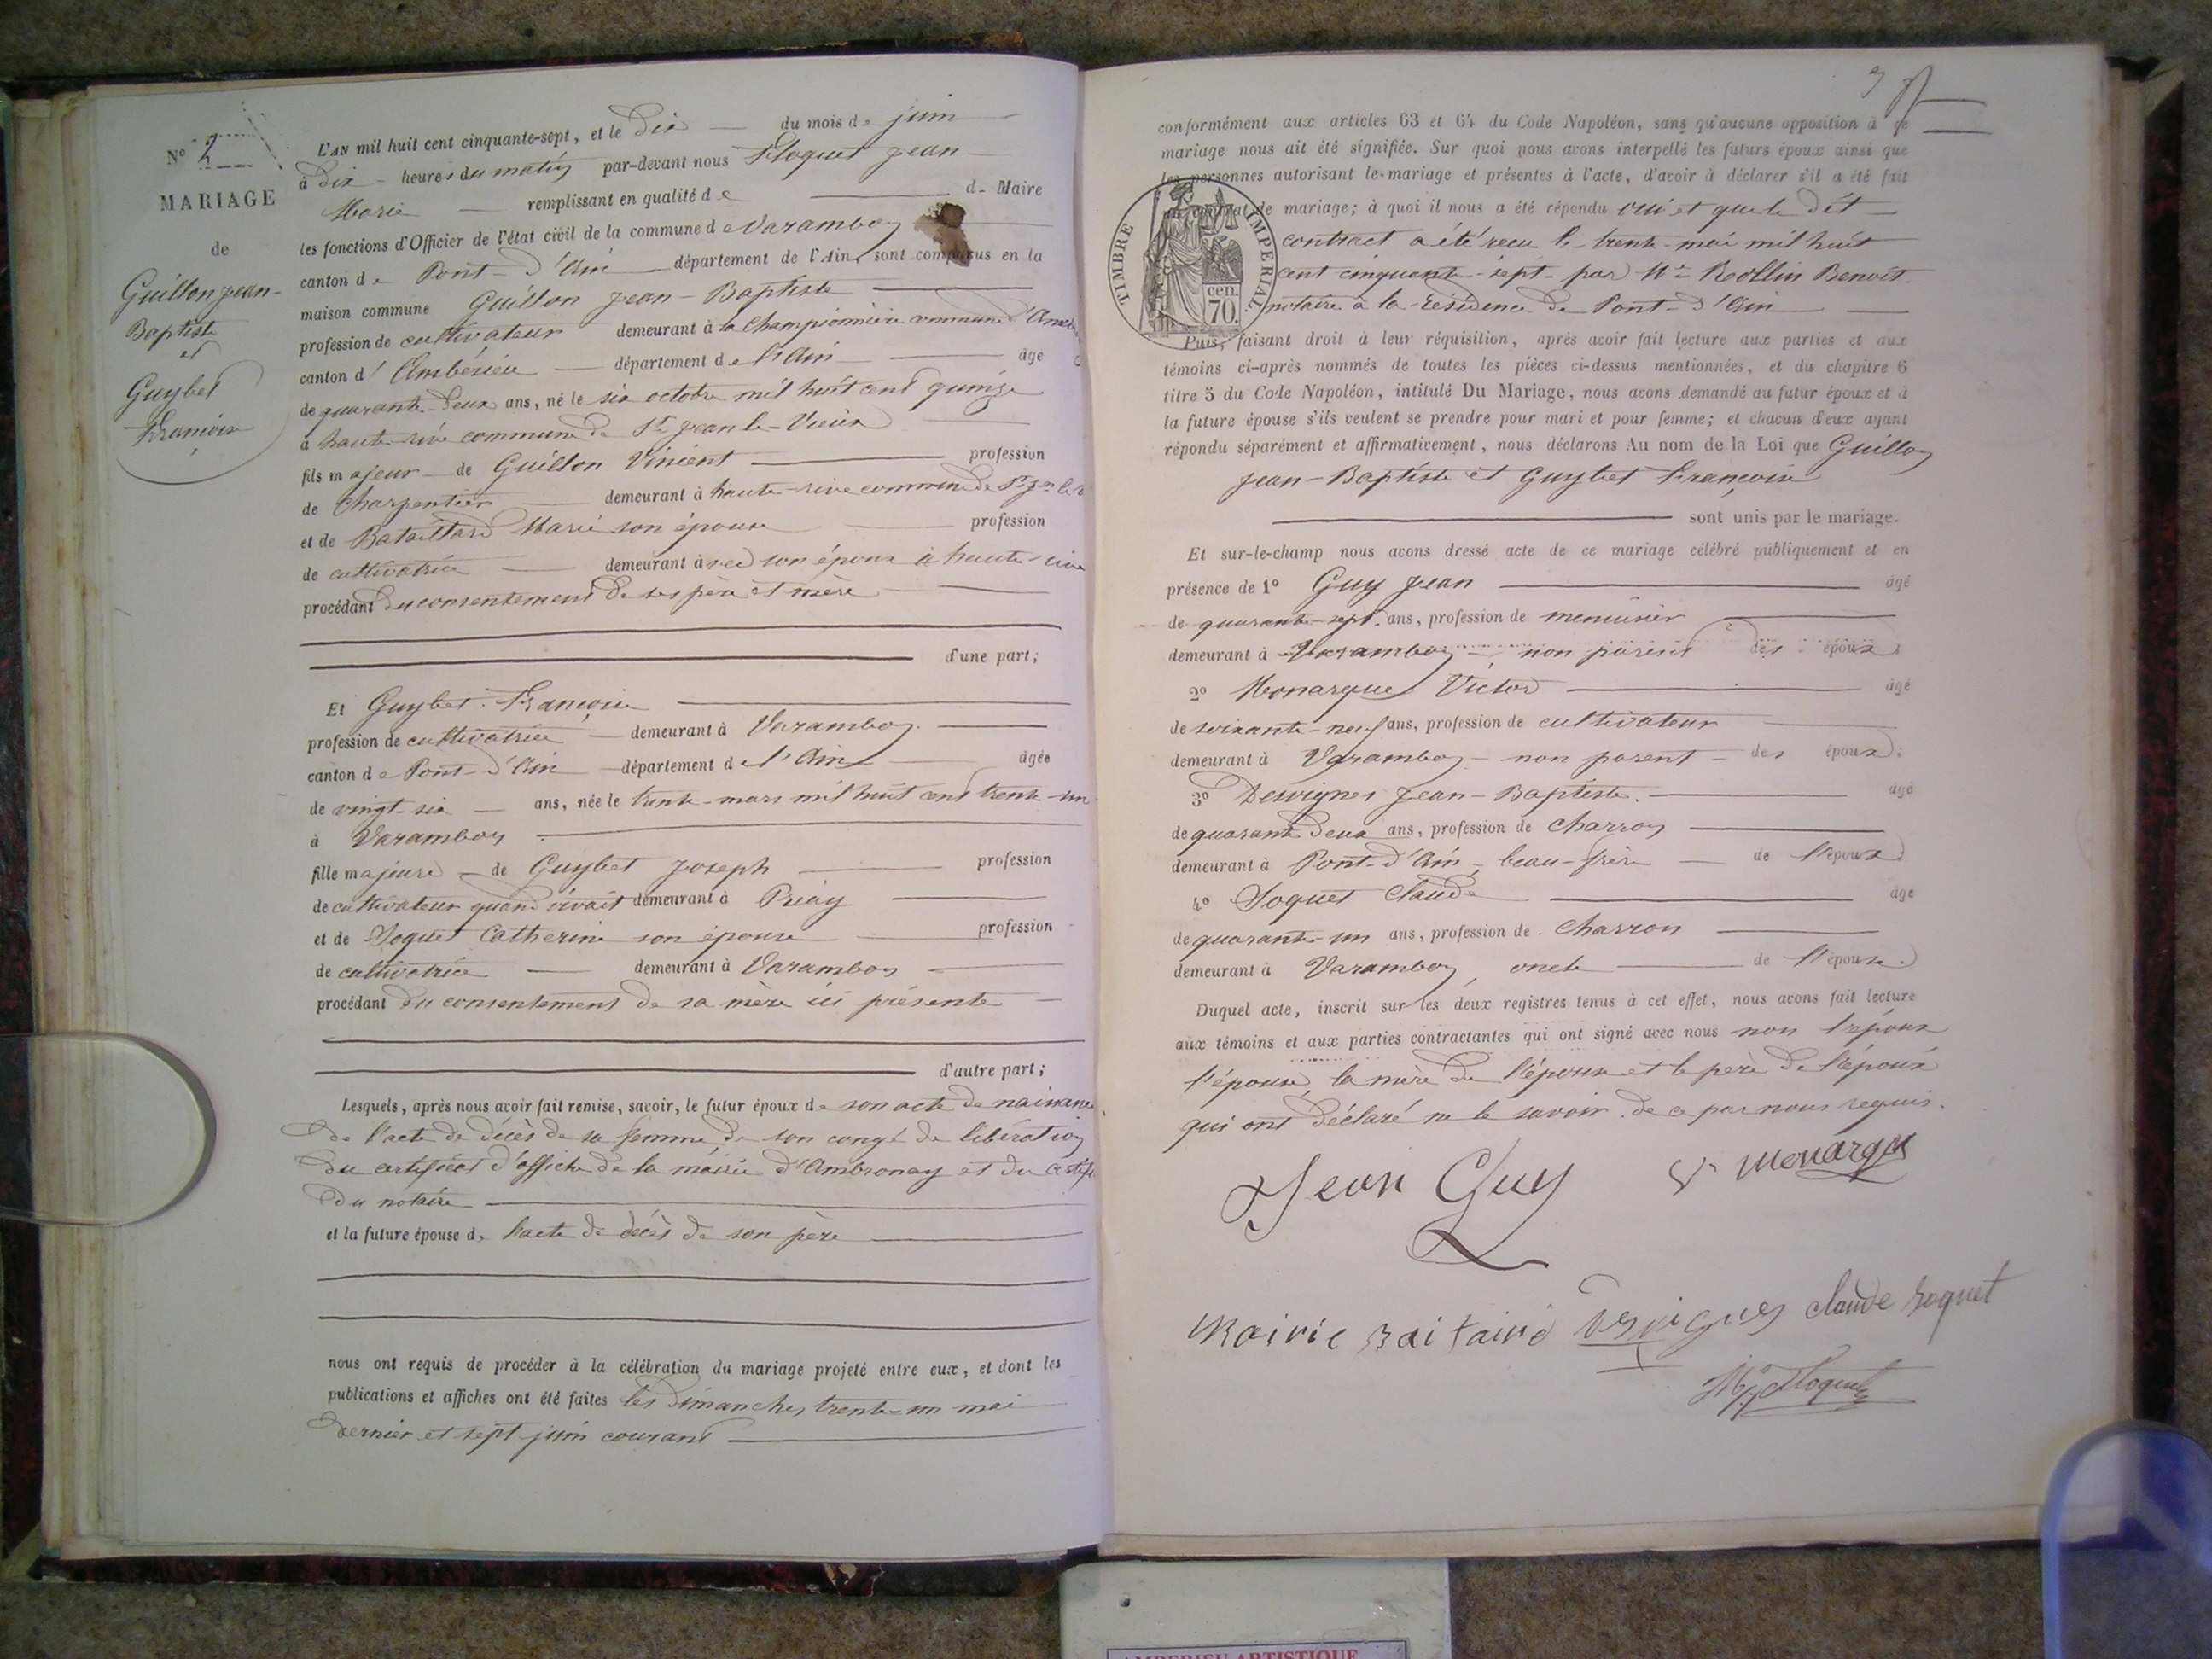 N° 2
MARIAGE
de
Guillon jean-
Baptiste
et
Guybet
françoise
L'AN mil huit cent cinquante-sept, et le Dix du mois de juin
à dix heures du matin par-devant nous floquet jean
Marie remplissant en qualité de d Maire
les fonctions d'Officier de l'état civil de la commune de Varambon
canton de Pont-d'Ain département de l'Ain, sont comparus en la
maison commune Guillon jean-Baptiste
profession de cultivateur demeurant à la Championnière commune d'Amb
canton d'Ambérieu département de l'Ain âgé
de quarante-deux ans, né le six octobre mil huit cent quinze
à haute rive commune de St jean le-Vieux
fils majeur de Guillon Vincent profession
de charpentier demeurant à haute-rive commune de St Jn le V
et de Bataillard Marie son épouse profession
de cultivatrice demeurant avec son époux à haute-rive
procédant du consentement de ses père et mère
d'une part;
Et Guybet françoise
profession de cultivatrice demeurant à Varambon
canton de Pont-d'Ain département de l'Ain âgée
de vingt-six ans, née le trente-mars mil huit cent trente-un
à Varambon
fille majeure de Guybet joseph profession
de cultivateur quand vivait demeurant à Priay
et de Soquet Catherine son épouse profession
de cultivatrice demeurant à Varambon
procédant du consentement de sa mère ici présente
d'autre part;
Lesquels, après nous avoir fait remise, savoir, le futur époux de son acte de naissance
de l'acte de décès de sa femme de son congé de libération
du certificat d'affiche de la mairie d'Ambronay et du certif
du notaire
et la future épouse de l'acte de décès de son père
nous ont requis de procéder à la célébration du mariage projeté entre eux, et dont les
publications et affiches ont été faites les dimanches trente-un mai
dernier et sept juin courant
conformément aux articles 63 et 64 du Code Napoléon, sans qu'aucune opposition à ce
mariage nous ait été signifiée. Sur quoi nous avons interpellé les futurs époux ainsi que
les personnes autorisant le mariage et présentes à l'acte, d'avoir à déclarer s'il a été fait
un contrat de mariage; à quoi il nous a été répondu oui et que le dit
contract a été reçu le trente mai mil huit
cent cinquante-sept par Me Rollin Benoît
notaire à la résidence de Pont-d'Ain
TIMBRE IMPERIAL
cen.
70.
Puis, faisant droit à leur réquisition, après avoir fait lecture aux parties et aux
témoins ci-après nommés de toutes les pièces ci-dessus mentionnées, et du chapitre 6
titre 5 du Code Napoléon, intitulé Du Mariage, nous avons demandé au futur époux et à
la future épouse s'ils veulent se prendre pour mari et pour femme; et chacun d'eux ayant
répondu séparément et affirmativement, nous déclarons Au nom de la Loi que Guillon
jean-Baptiste et Guybet françoise
sont unis par le mariage.
Et sur-le-champ nous avons dressé acte de ce mariage célébré publiquement et en
présence de 1° Guy jean âgé
de quarante-sept ans, profession de menuisier
demeurant à Varambon non parent des époux
2° Monarque Victor âgé
de soixante-neuf ans, profession de cultivateur
demeurant à Varambon non parent des époux
3° Desvignes jean-Baptiste âgé
de quarante deux ans, profession de charron
demeurant à Pont-d'Ain, beau-frère de l'époux
4° Soquet Claude âgé
de quarante-un ans, profession de Charron
demeurant à Varambon oncle de l'épouse
Duquel acte, inscrit sur les deux registres tenus à cet effet, nous avons fait lecture
aux témoins et aux parties contractantes qui ont signé avec nous non l'époux
l'épouse, la mère de l'épouse et le père de l'époux
qui ont déclaré ne le savoir de ce par nous requis.
Jean Guy
Vr Monarque
Mairie
Desvignes
claude soquet
floquet